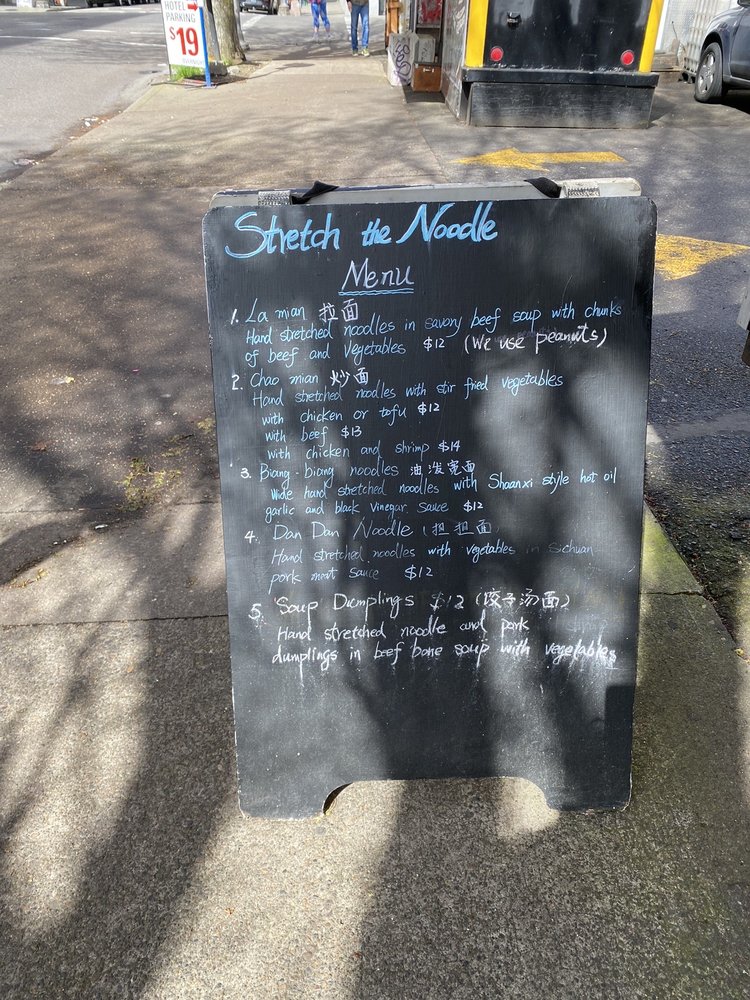 HOTEL
PARKING
$19
OVERNIGHT
Stretch the Noodle
Menu
1. La mian 拉面
Hand stretched noodles in savory beef soup with chunks
of beef and vegetables $12 (We use peanuts)
2. Chao mian 炒面
Hand stretched noodles with stir fried vegetables
with chicken or tofu $12
with beef $13
with chicken and shrimp $14
3. Biang-biang noodles 油泼宽面
Wide hand stretched noodles with Shaanxi style hot oil
garlic and black vinegar sauce $12
4. Dan Dan Noodle (担担面)
Hand stretched noodles with vegetables in Sichuan
pork meat sauce $12
5. Soup Dumplings $12 (饺子汤面)
Hand stretched noodle and pork
dumplings in beef bone soup with vegetables